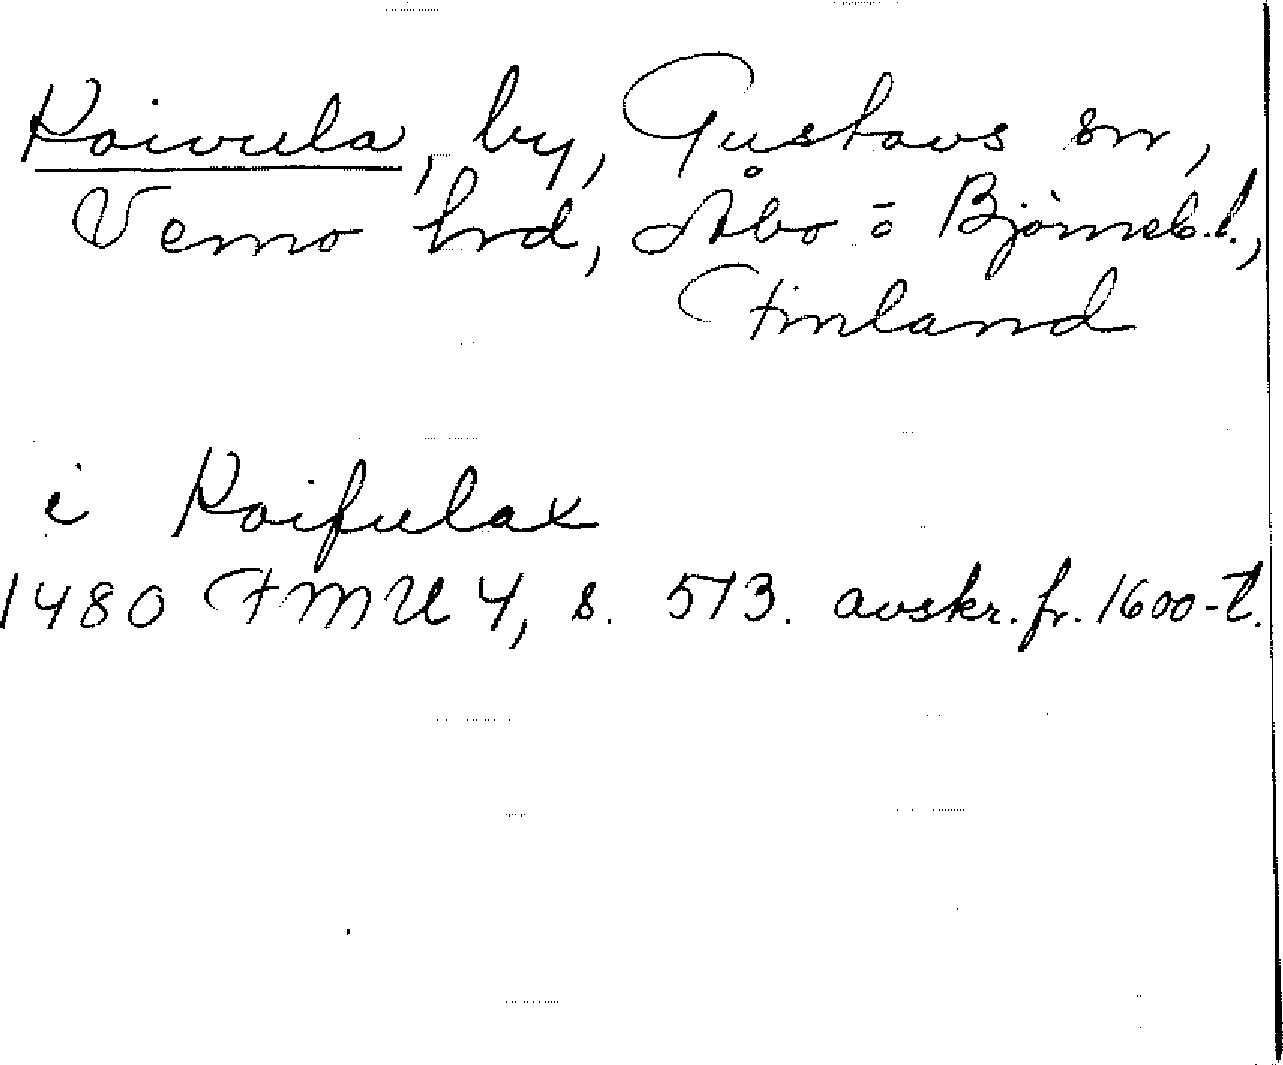 Koivula, by, Gustavs sn,
Vemo hrd, Åbo o Björneb.l.,
Finland
i Koifulax
1480 FMU 4, s. 513. avskr. fr. 1600-t.